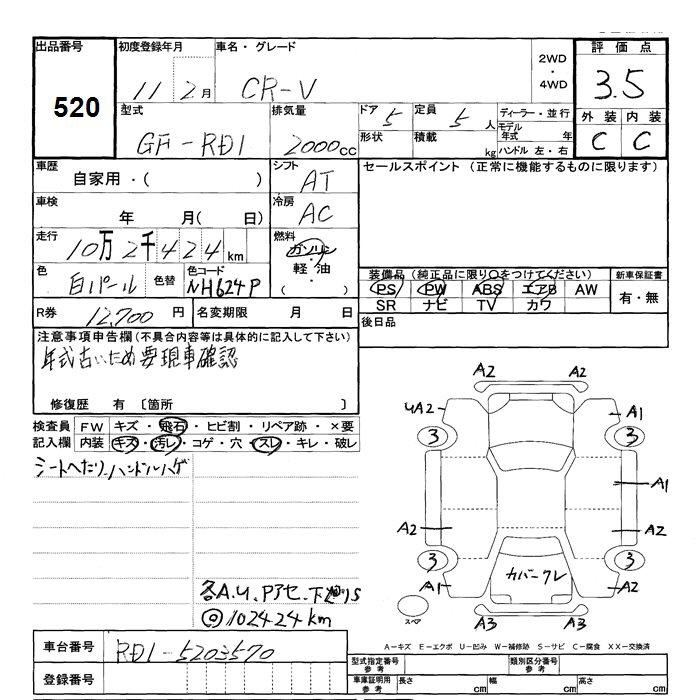 出品番号 初度登録年月 車名・グレード 2WD・4WD 評価点
520 11 2月 CR-V 3.5
外装 内装
C C
型式 排気量 ドア 5 定員 5人 ディーラー・並行
GF-RD1 2000cc 形状 積載 kg モデル年式 年
ハンドル 左・右
車歴 シフト セールスポイント (正常に機能するものに限ります)
自家用・( ) AT
車検 冷房
年 月( 日) AC
走行 燃料
10万2千424km ガソリン・軽油・( )
色 白パール 色替 色コード NH624P
装備品(純正品に限り○をつけてください) 新車保証書
PS PW ABS エアB AW 有・無
SR ナビ TV カワ
R券 12,700円 名変期限 月 日
後日品
注意事項申告欄(不具合内容等は具体的に記入して下さい)
年式古いため要現車確認
修復歴 有 〔箇所 〕
検査員記入欄 FW キズ・飛石・ヒビ割・リペア跡・×要
内装 キズ・汚レ・コゲ・穴・スレ・キレ・破レ
シートへたり、ハンドルハゲ
各A.U.Pアセ.下廻りS
◎102424km
A2 A2
4A2 A1
3 3
A1
A2 A2
3 3
A1 カバークレ A2
スペア A3 A3
A-キズ E-エクボ U-凹み W-補修跡 S-サビ C-腐食 XX-交換済
車台番号 RD1-5203570
登録番号
型式指定番号 参考 類別区分番号 参考
車庫証明用 参考 長さ cm 幅 cm 高さ cm